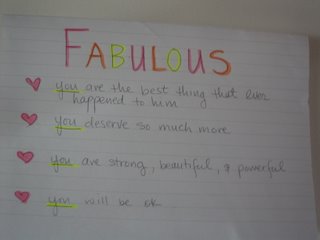 FABULOUS
you are the best thing that ever
happened to him
you deserve so much more
you are strong, beautiful, & powerful
you will be ok